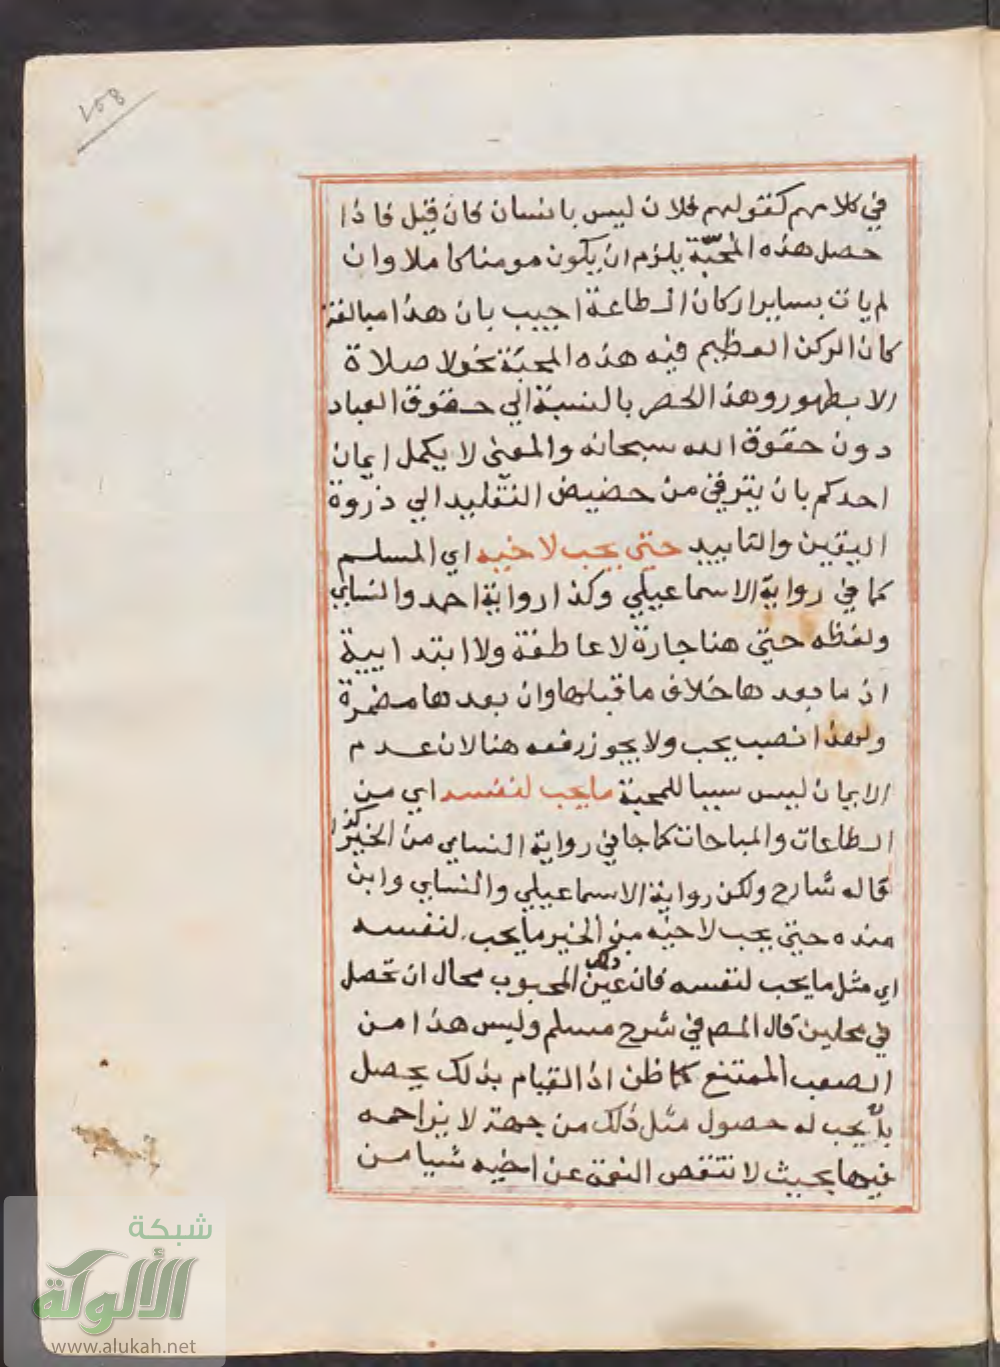 ١٥٨
في كلامهم كقولهم فلان ليس بانسان فان قيل فاذا
حصل هذه المحبّة يلزم ان يكون مومنا كاملا وان
لم يات بساير اركان الطاعة اجيب بان هذا مبالغة
كان الركن العظيم فيه هذه المحبّة نحو لا صلاة
الا بطهور وهذا الحصر بالنسبة الي حقوق العباد
دون حقوق الله سبحانه والمعني لا يكمل ايمان
احدكم بان يترقي من حضيض التقليد الي ذروة
اليقين والتاييد حتي يحب لاخيه اي المسلم
كما في رواية الاسماعيلي وكذا رواية احمد والنساي
ولفظه حتي هنا جارة لا عاطفة ولا ابتداايية
اذ ما بعدها خلاف ما قبلها وان بعدها مضمرة
ولهذا نصب يحب ولا يجوز رفعه هنا لان عدم
الايمان ليس سببا للمحبة ما يحب لنفسه اي من
الطاعات والمباحات كما جا في رواية النساي من الخير كذا
قاله شارح ولكن رواية الاسماعيلي والنساي وابن
منده حتي يحب لاخيه من الخير ما يحب لنفسه
اي مثل ما يحب لنفسه فان عين ذلك المحبوب محال ان تحصل
في محلين قال المصـ في شرح مسلم وليس هذا من
الصعب الممتنع كما ظن اذ القيام بذلك يحصل
بأن يحب له حصول مثل ذلك من جهة لا يزاحمه
فيها بحيث لا تنقص النعمة عن اخيه شيا من
شبكة
الألوكة
www.alukah.net